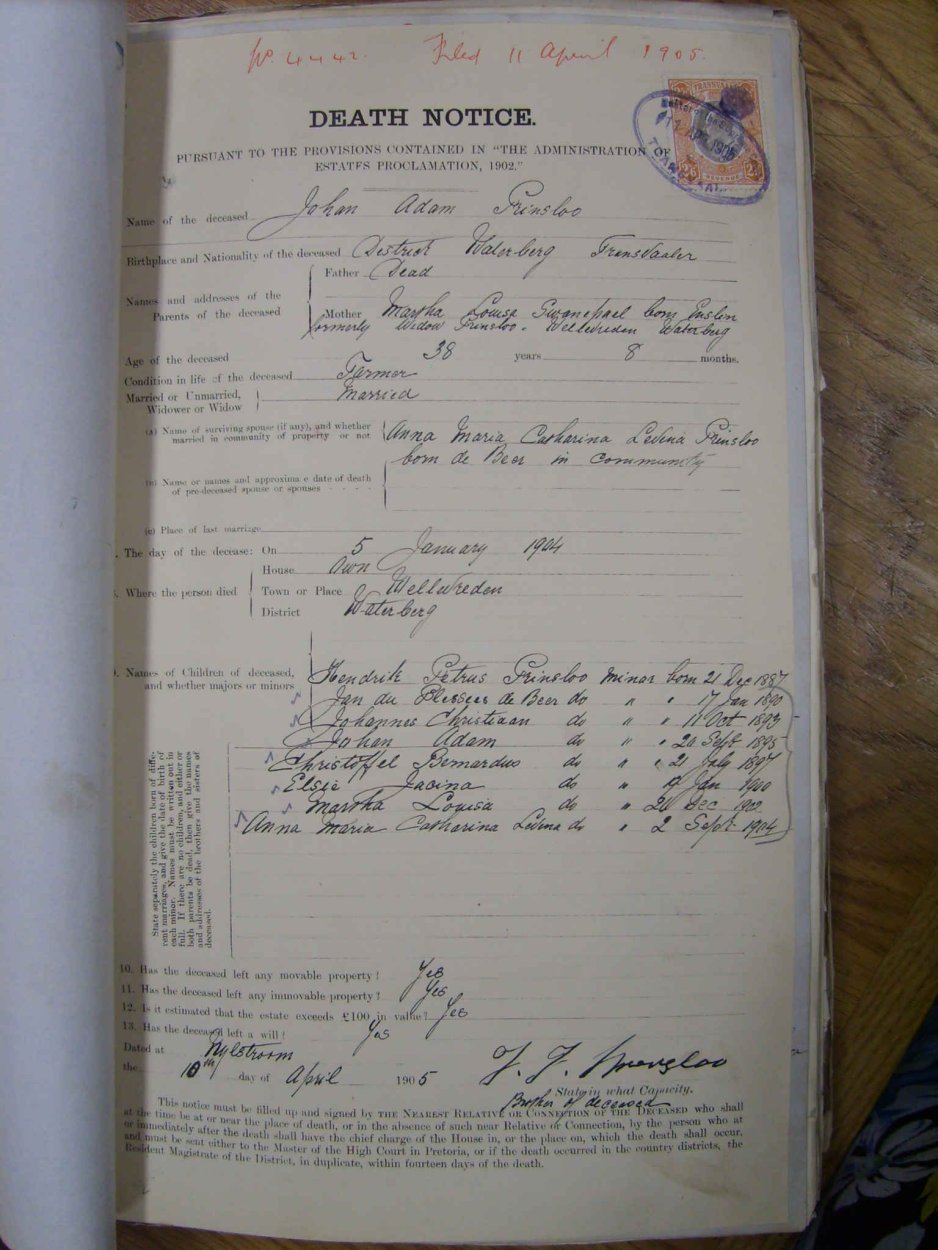 No. 4442. Filed 11 April 1905.
DEATH NOTICE.
PURSUANT TO THE PROVISIONS CONTAINED IN "THE ADMINISTRATION OF
ESTATES PROCLAMATION, 1902."
Name of the deceased Johan Adam Prinsloo
Birthplace and Nationality of the deceased District Waterberg Transvaaler
Names and addresses of the Parents of the deceased
Father Dead
Mother Martha Louisa Swanepoel born Enslin
formerly Widow Prinsloo. Welgevreden Waterberg
Age of the deceased 38 years 8 months.
Condition in life of the deceased Farmer
Married or Unmarried, Widower or Widow Married
(a) Name of surviving spouse (if any), and whether married in community of property or not
Anna Maria Catharina Levina Prinsloo
born de Beer in community
Name or names and approxima e date of death
of pre-deceased spouse or spouses
(c) Place of last marriage
The day of the decease: On 5 January 1904
Where the person died
House Own
Town or Place Welgevreden
District Waterberg
Names of Children of deceased,
and whether majors or minors
Hendrik Petrus Prinsloo minor born 21 Dec 1887
Jan du Plessies de Beer do " " 17 Jan 1890
Johannes Christiaan do " " 11 Oct 1893
Johan Adam do " " Sept 1895
Christoffel Bernardus do " " 21 July 1897
Elsie Jacina do " Jan 1900
Martha Louisa do " Dec
Anna Maria Catharina Levina do " 2 Sept 1904
State separately the children born of diffe-
rent marriages, and give the date of birth of
each minor. Names must be written out in
full. If there are no children, and either or
both parents be dead, then give the names
and addresses of the brothers and sisters of
deceased.
10. Has the deceased left any movable property? Yes
11. Has the deceased left any immovable property? Yes
12. Is it estimated that the estate exceeds £100 in value? Yes
13. Has the deceased left a will? Yes
Dated at Nylstroom
the 10th day of April 1905
State in what Capacity.
Brother of deceased
This notice must be filled up and signed by THE NEAREST RELATIVE OR CONNECTION OF THE DECEASED who shall
at the time be at or near the place of death, or in the absence of such near Relative or Connection, by the person who at
or immediately after the death shall have the chief charge of the House in, or the place on, which the death shall occur,
and must be sent either to the Master of the High Court in Pretoria, or if the death occurred in the country districts, the
Resident Magistrate of the District, in duplicate, within fourteen days of the death.